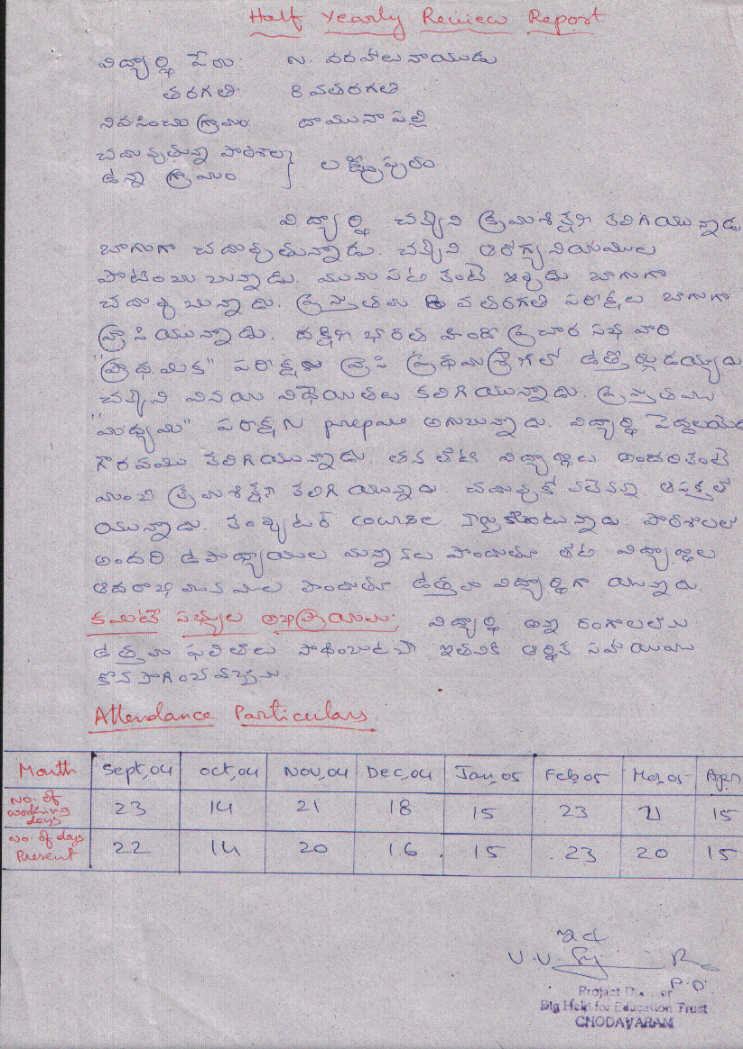 Half Yearly Review Report
విద్యార్థి పేరు: N. వరహాలునాయుడు
తరగతి: 8 వతరగతి
నివసించు గ్రామం: దామునాపల్లి
చదువుతున్న పాఠశాల
ఉన్న గ్రామం } లక్ష్మీపురం
విద్యార్థి చక్కని క్రమశిక్షణ కలిగియున్నాడు
బాగుగా చదువుతున్నాడు. చక్కని ఆరోగ్యనియమాలు
పాటించుచున్నాడు. మునుపటి కంటె ఇప్పుడు బాగుగా
చదువుచున్నాడు. ప్రస్తుతము 8 వతరగతి పరీక్షలు బాగుగా
వ్రాసియున్నాడు. దక్షిణ భారత హిందీ ప్రచార సభ వారి
"ప్రాథమిక" పరీక్షను వ్రాసి ప్రథమశ్రేణిలో ఉత్తీర్ణుడయ్యాడు
చక్కని వినయ విధేయతలు కలిగియున్నాడు. ప్రస్తుతము
"మధ్యమ" పరీక్షకు prepare అగుచున్నాడు. విద్యార్థి పెద్దలయెడ
గౌరవము కలిగియున్నాడు. తన తోటి విద్యార్థులు అందరికంటె
మంచి క్రమశిక్షణ కలిగియున్నాడు. చదువుకోవలెనన్న ఆసక్తితో
యున్నాడు. కంప్యూటర్ course నేర్చుకొంటున్నాడు. పాఠశాలలో
అందరి ఉపాధ్యాయుల మన్ననలు పొందుతూ తోటి విద్యార్థుల
ఆదరాభిమానములు పొందుతూ ఉత్తమ విద్యార్థిగా యున్నాడు.
కమిటీ సభ్యుల అభిప్రాయము: విద్యార్థి అన్ని రంగాలలోను
ఉత్తమ ఫలితాలు సాధించుటచే ఇతనికి ఆర్థిక సహాయము
కొనసాగించవచ్చును.
Attendance Particulars
Month Sept,04 Oct,04 Nov,04 Dec,04 Jan,05 Feb,05 Mar,05 April
No. of working days 23 14 21 18 15 23 21 15
No. of days Present 22 14 20 16 15 23 20 15
P.D.
Project
Big Help for Education Trust
CHODAVARAM